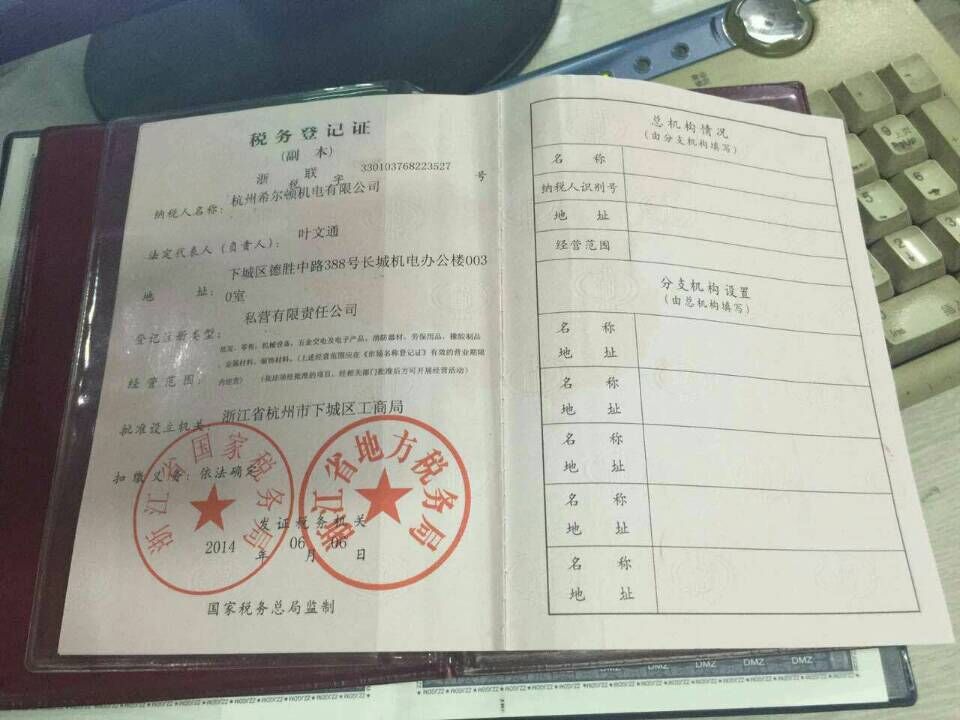 税务登记证
(副 本)
浙 税 联 字 330103768223527 号
纳税人名称: 杭州希尔顿机电有限公司
法定代表人(负责人): 叶文通
地 址: 下城区德胜中路388号长城机电办公楼003
0室
登记注册类型: 私营有限责任公司
经营范围:
机械设备、五金交电及电子产品、消防器材、劳保用品、橡胶制品
金属材料、装饰材料。(上述经营范围应在《市场名称登记证》有效的营业期限
内经营) (依法须经批准的项目,经相关部门批准后方可开展经营活动)
批准设立机关: 浙江省杭州市下城区工商局
扣缴义务: 依法确定
浙江省国家税务局
浙江省地方税务局
发证税务机关
2014 年 06 月 06 日
国家税务总局监制
总机构情况
(由分支机构填写)
名 称
纳税人识别号
地 址
经营范围
分支机构设置
(由总机构填写)
名 称
地 址
名 称
地 址
名 称
地 址
名 称
地 址
名 称
地 址
DMZ DMZ DMZ